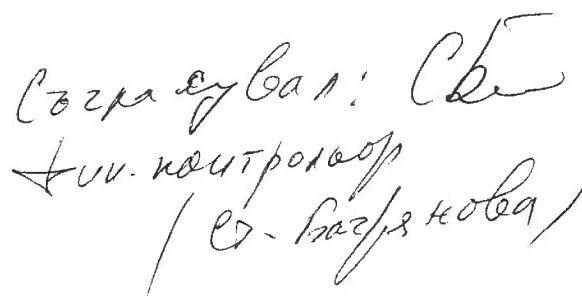 Съгласувал:
фин. контрольор
/ Ст. Багрянова /